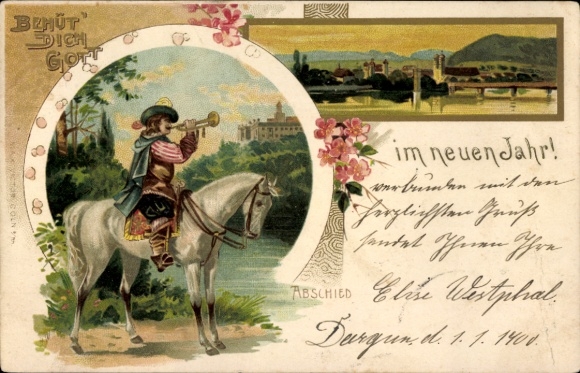 BEHÜT'
DICH
GOTT
im neuen Jahr!
verbunden mit den
herzlichsten Gruß
sendet Ihnen Ihre
ABSCHIED.
Elise Westphal.
Dargun, d. 1. 1. 1900.